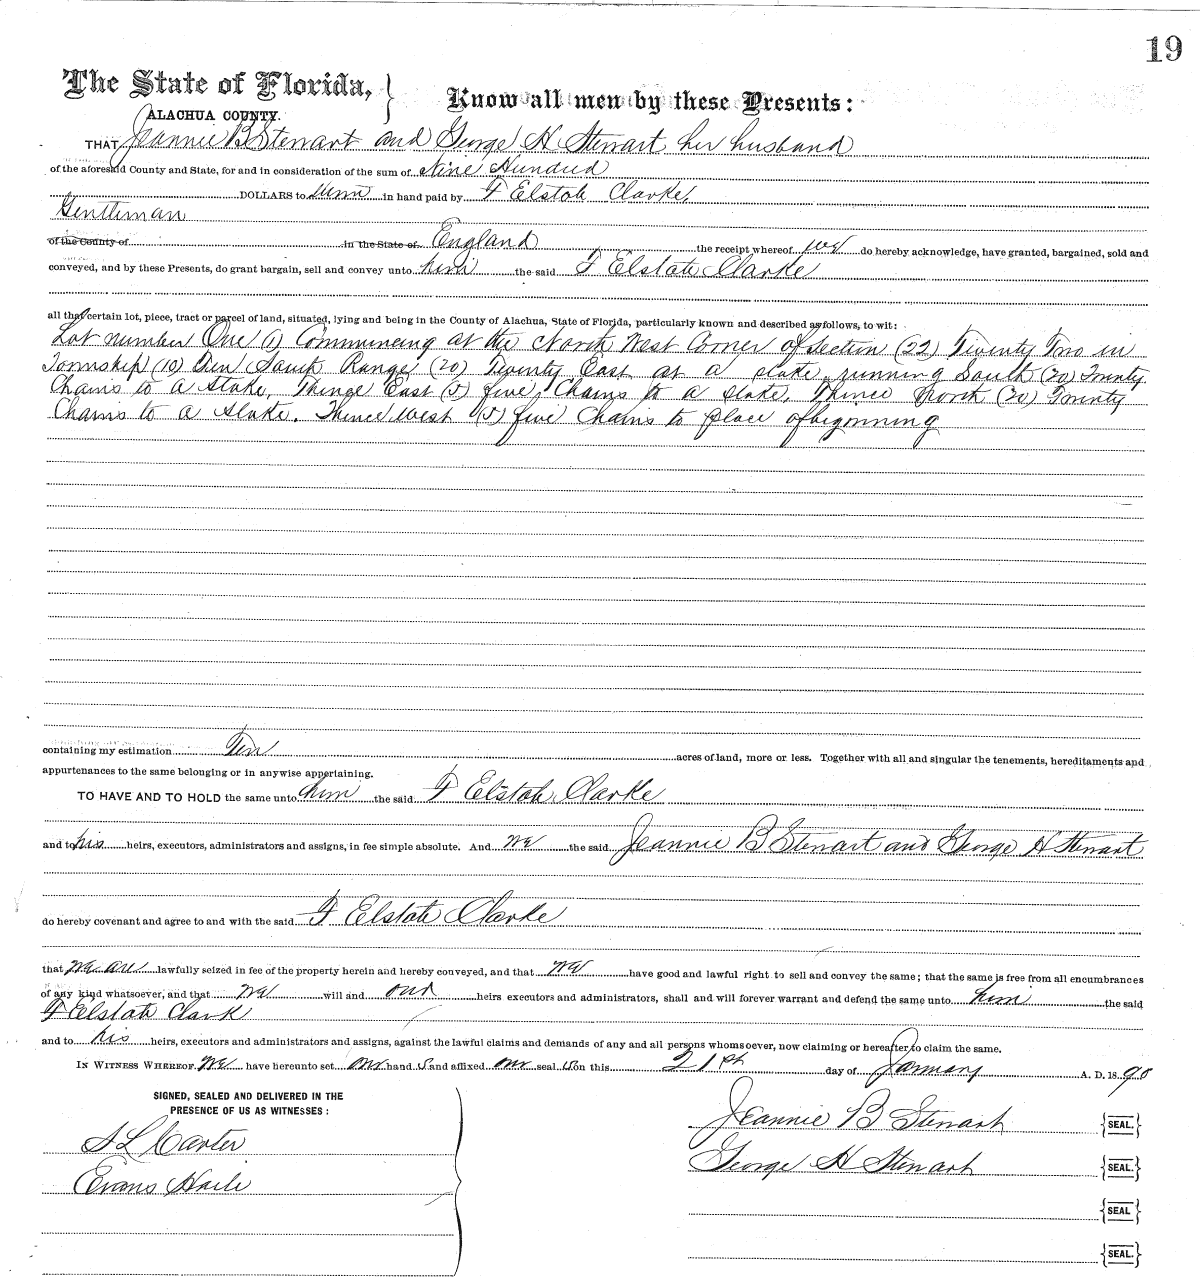 19
The State of Florida, }
Know all men by these Presents:
ALACHUA COUNTY.
THAT Jeannie B Stewart and George H Stewart her husband
of the aforesaid County and State, for and in consideration of the sum of Nine Hundred
DOLLARS to them in hand paid by F Elstob Clarke,
Gentleman
of the County of in the State of England the receipt whereof we do hereby acknowledge, have granted, bargained, sold and
conveyed, and by these Presents, do grant bargain, sell and convey unto him the said F Elstate Clarke
all that certain lot, piece, tract or parcel of land, situated, lying and being in the County of Alachua, State of Florida, particularly known and described as follows, to wit:
Lot number One (1) Commencing at the North West Corner of Section (22) Twenty Two in
Township (10) Ten South Range (20) Twenty East at a stake running South (20) Twenty
Chains to a stake, Thence East (5) five Chains to a stake, Thence North (20) Twenty
Chains to a stake. Thence west (5) five Chains to place of begonning
containing my estimation Ten acres of land, more or less. Together with all and singular the tenements, hereditaments and
appurtenances to the same belonging or in anywise appertaining.
TO HAVE AND TO HOLD the same unto him the said F Elstob Clarke
and to his heirs, executors, administrators and assigns, in fee simple absolute. And we the said Jeannie B Stewart and George H Stewart
do hereby covenant and agree to and with the said F Elstate Clarke
that we are lawfully seized in fee of the property herein and hereby conveyed, and that we have good and lawful right to sell and convey the same; that the same is free from all encumbrances
of any kind whatsoever, and that we will and our heirs executors and administrators, shall and will forever warrant and defend the same unto him the said
F Elstob Clark
and to his heirs, executors and administrators and assigns, against the lawful claims and demands of any and all persons whomsoever, now claiming or hereafter to claim the same.
IN WITNESS WHEREOF we have hereunto set our hand S and affixed our seal S on this 21st day of January A. D. 1890
SIGNED, SEALED AND DELIVERED IN THE
PRESENCE OF US AS WITNESSES:
Jeannie B Stewart {SEAL.}
S L Carter
George H Stewart {SEAL.}
Evans Haile
{SEAL}
{SEAL.}